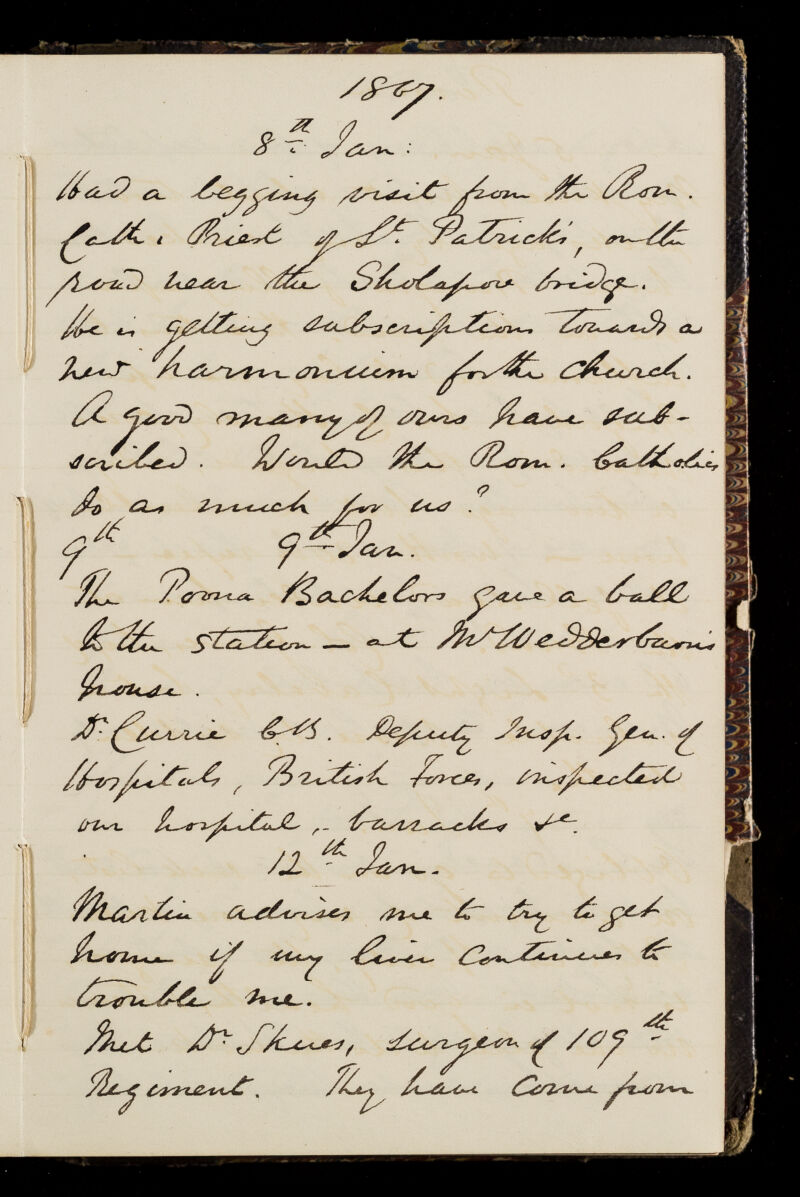 1867.
8th Jan:
Had a begging visit from the Rom.
Cath. Priest of St. Patrick's, on the
road near the Sholapore bridge.
He is getting subscriptions towards a
new harmonium for the church.
A good many of ours have sub-
scribed. Would the Rom. Catholics
do as much for us?
9th 9th Jan.
The Poona Bachelors gave a ball
to the station — at Mr Wedderburn's
house.
Dr. Currie C.B. Deputy Insp. Gen. of
Hospitals, British Forces, inspected
our hospital, barracks &c.
12th Jan.
Martin advises me to try to get
home if my liver continues to
trouble me.
Met Dr. Skues, surgeon of 109th
Regiment. They have come from